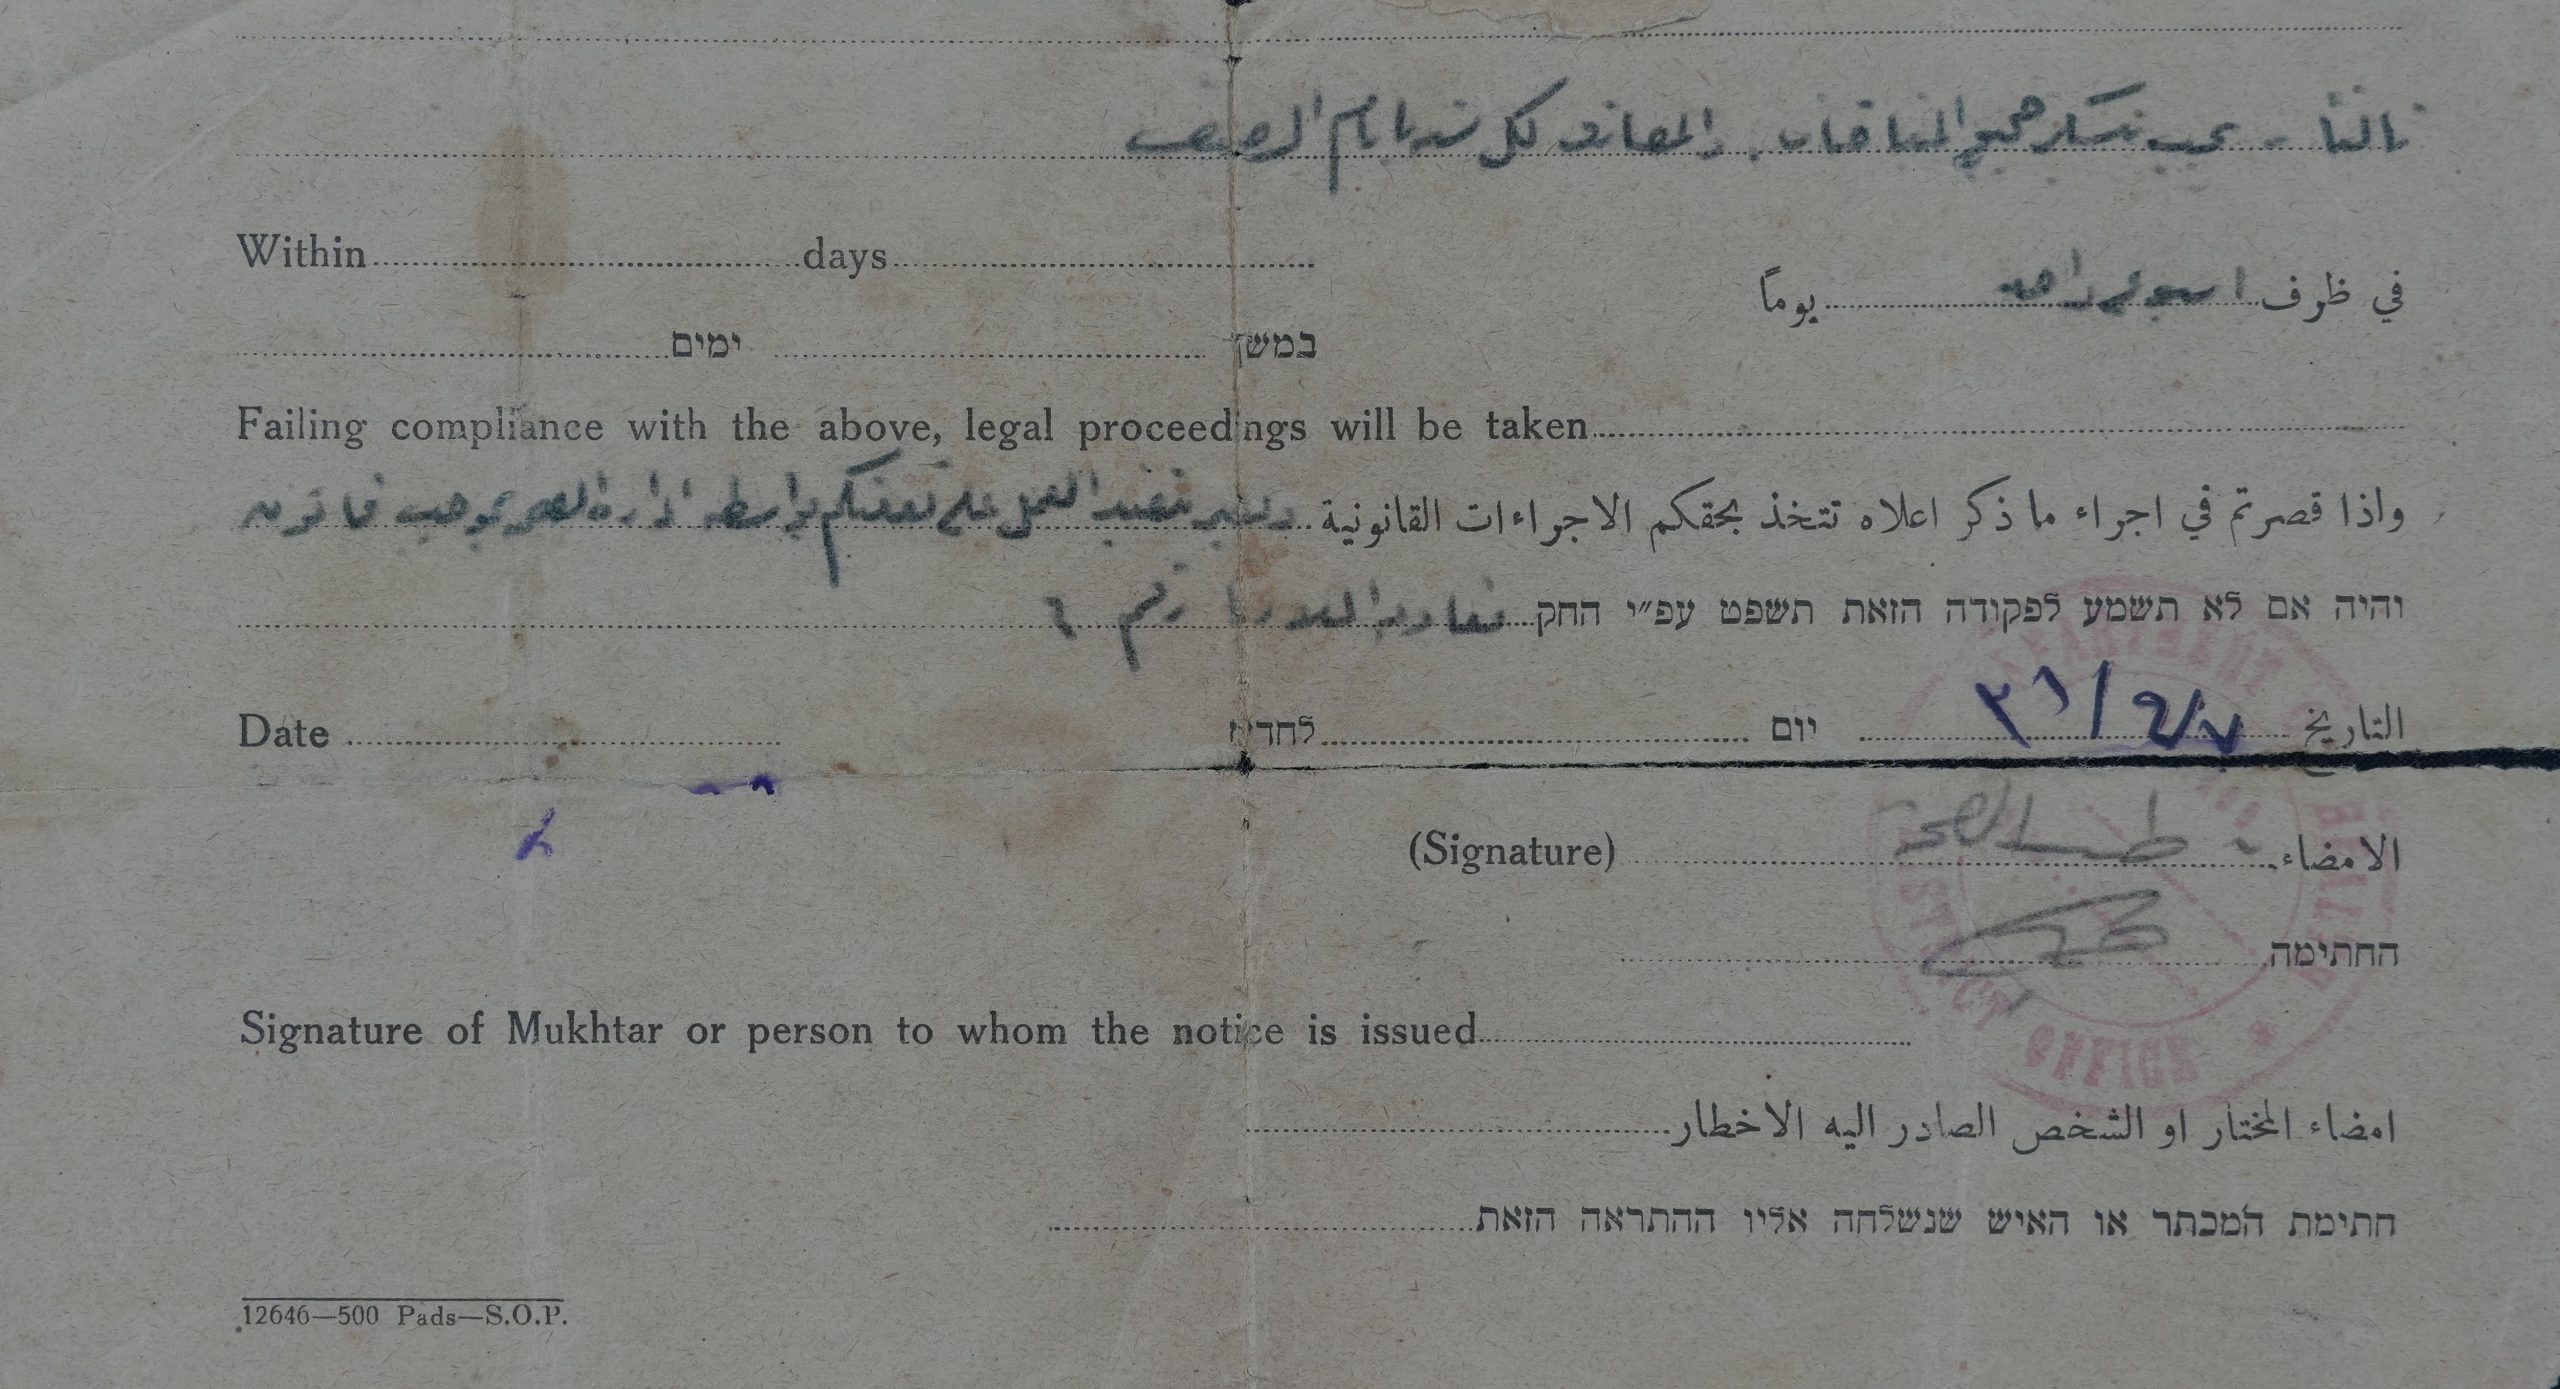 ثالثاً - يجب تسكير جميع المنافذ والمصارف لكل شتاء ايام الصيف
Within days
في ظرف اسبوع واحد يوماً
במשך ימים
Failing compliance with the above, legal proceedings will be taken
واذا قصرتم في اجراء ما ذكر اعلاه تتخذ بحقكم الاجراءات القانونية العمل على نفقتكم بواسطة ادارة الصحة بموجب قانون
והיה אם לא תשמע לפקודה הזאת תשפט עפ״י החק الملاريا رقم
Date לחדש יום التاريخ
(Signature) الامضاء
החתימה
Signature of Mukhtar or person to whom the notice is issued
امضاء المختار او الشخص الصادر اليه الاخطار
חתימת המכתר או האיש שנשלחה אליו ההתראה הזאת
12646—500 Pads—S.O.P.
DEPARTMENT HEALTH DISTRICT OFFICE